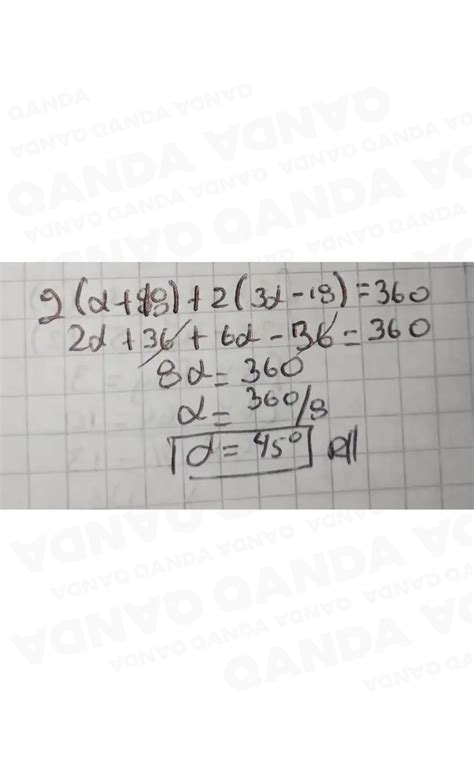 QANDA
2(α+18)+2(3α-18)=360
2α+36+6α-36=360
8α=360
α=360/8
α=45° R//